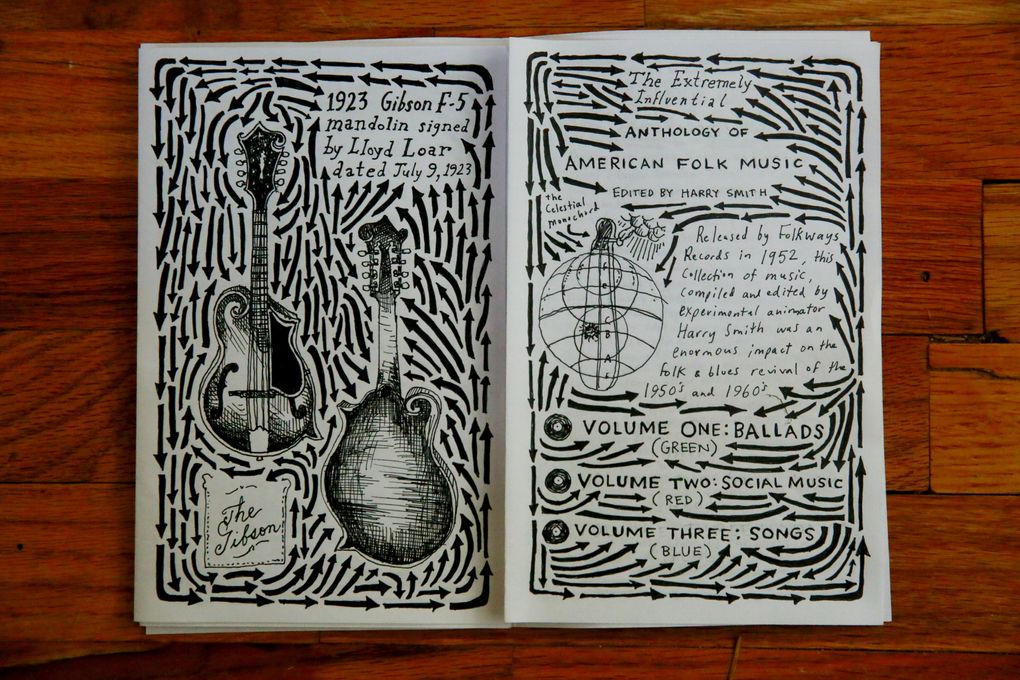 1923 Gibson F-5
mandolin signed
by Lloyd Loar
dated July 9, 1923
The
Gibson
The Extremely
Influential
ANTHOLOGY OF
AMERICAN FOLK MUSIC
EDITED BY HARRY SMITH
the
Celestial
monochord
Released by Folkways
Records in 1952, this
Collection of music,
compiled and edited by
experimental animator
Harry Smith was an
enormous impact on the
folk & blues revival of the
1950's and 1960's
VOLUME ONE: BALLADS
(GREEN)
VOLUME TWO: SOCIAL MUSIC
(RED)
VOLUME THREE: SONGS
(BLUE)